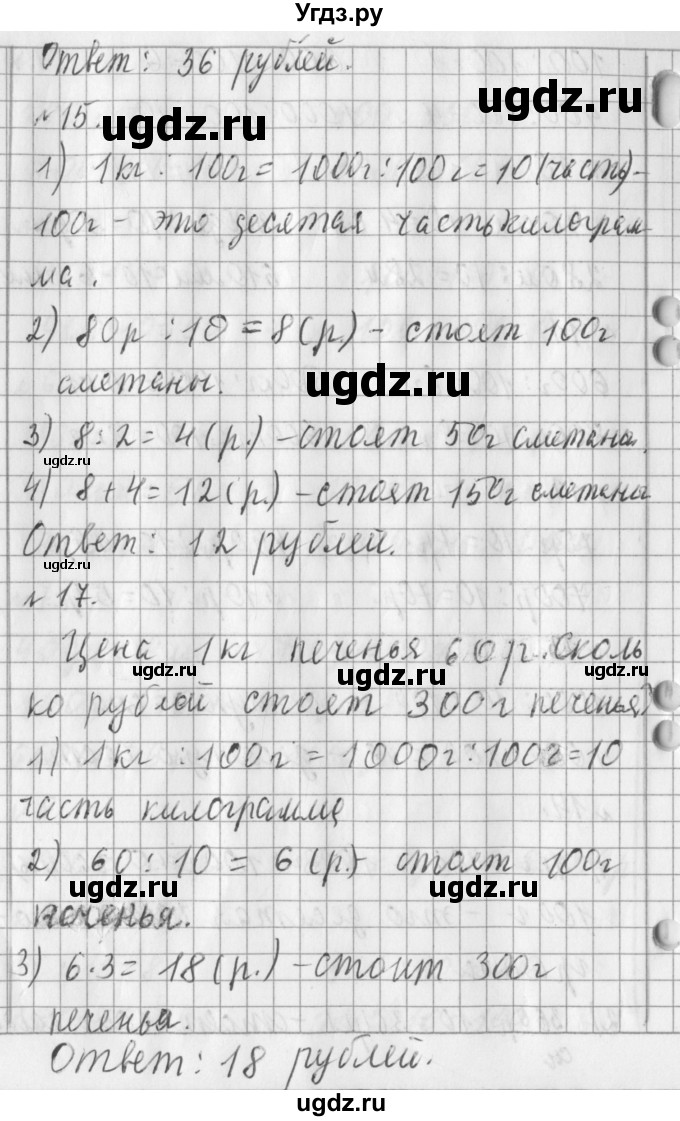 Угдз.ру
Ответ: 36 рублей.
ugdz.ru
№15. ugdz.ru
1) 1кг : 100г = 1000г : 100г = 10 (часть) -
100г - это десятая часть килограм-
ма.
2) 80р : 10 = 8 (р.) - стоят 100г
сметаны. ugdz.ru
3) 8 : 2 = 4 (р.) - стоят 50г сметана.
ugdz.ru
4) 8 + 4 = 12 (р.) - стоят 150г сметаны
Ответ: 12 рублей.
ugdz.ru
№17.
Цена 1кг печенья 60р. Сколь
ugdz.ru ugdz.ru ugdz.ru
ко рублой стоят 300г печенья?
1) 1кг : 100г = 1000г : 100г = 10
часть килограмма
2) 60 : 10 = 6 (р.) - стоят 100г
ugdz.ru ugdz.ru
печенья.
3) 6·3 = 18 (р.) - стоит 300г
печенья.
Ответ: 18 рублей.
ugdz.ru